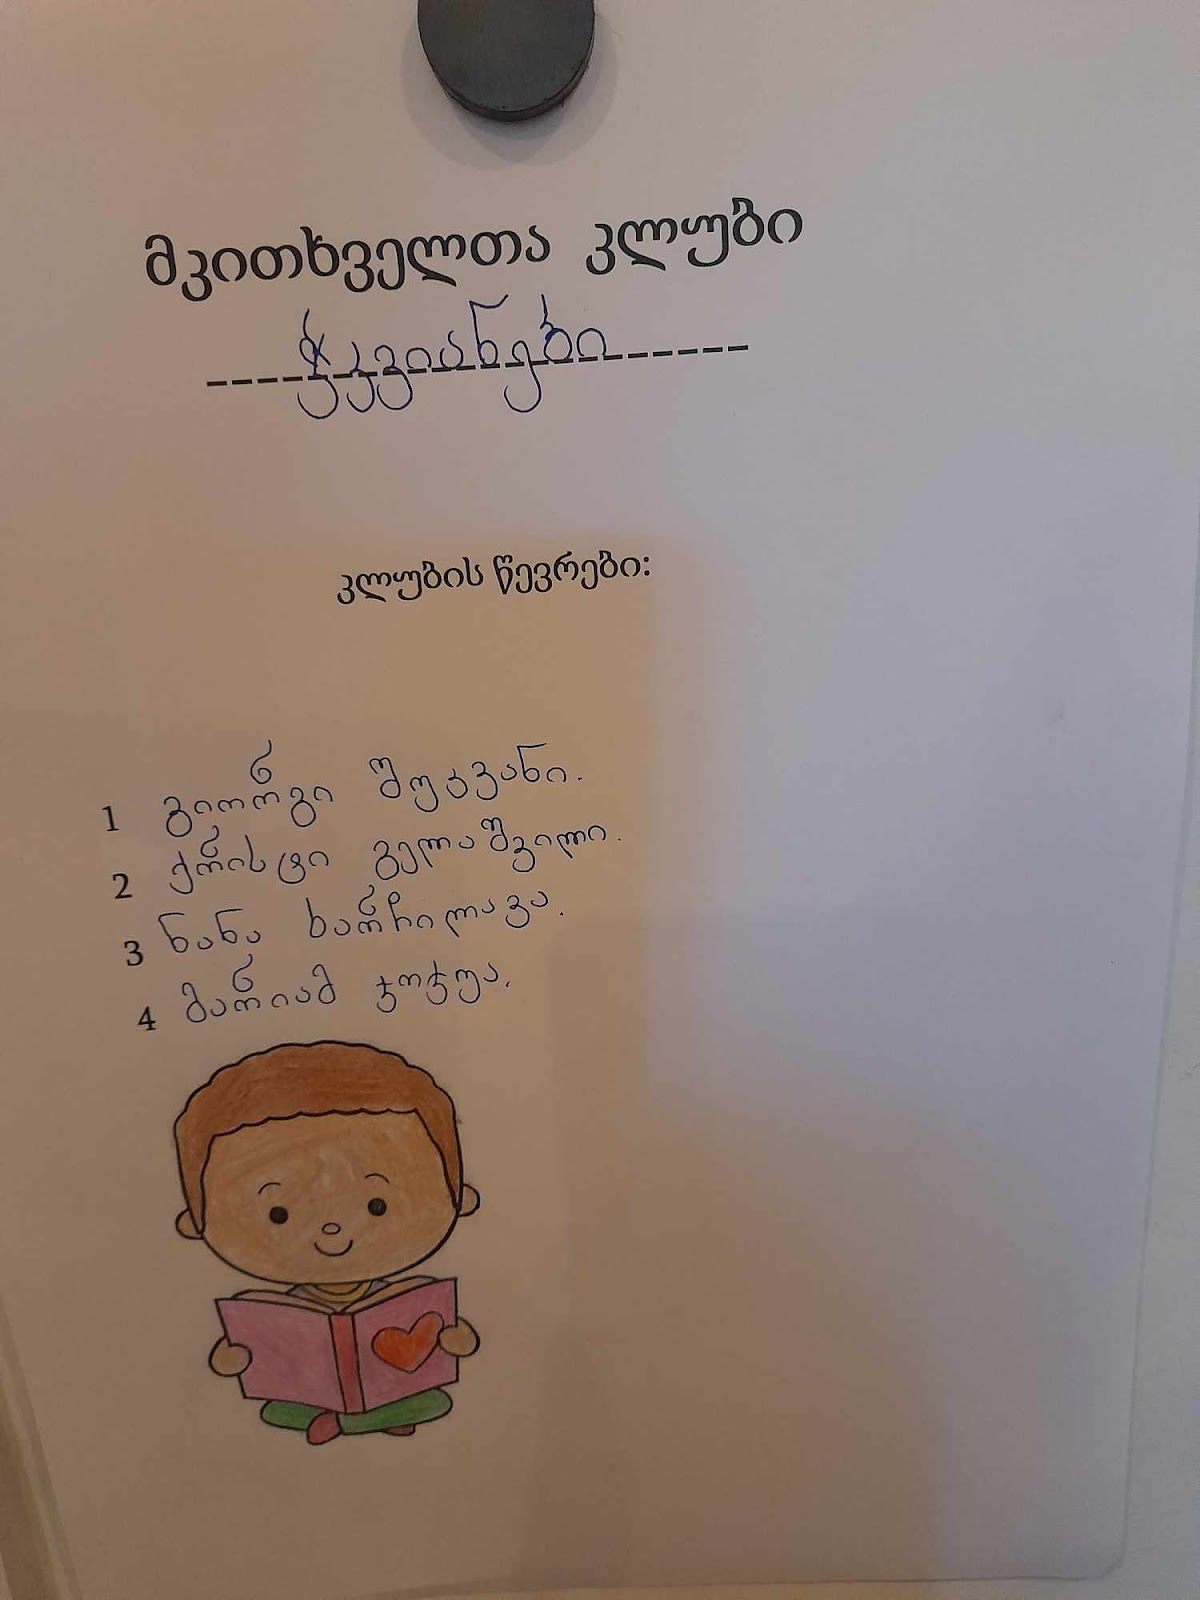 მკითხველთა კლუბი
ჭკვიანები
კლუბის წევრები:
1 გიორგი შუკვანი.
2 ქრისტი გელაშვილი.
3 ნანა ხარჩილავა.
4 მარიამ ჯოჭუა.